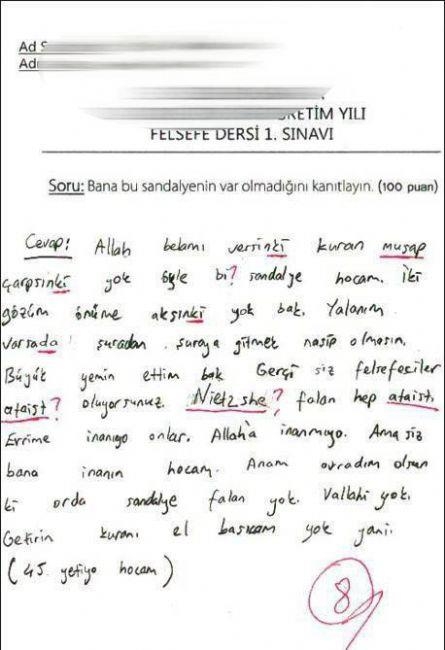 Ad S
Adı
RETİM YILI
FELSEFE DERSİ 1. SINAVI
Soru: Bana bu sandalyenin var olmadığını kanıtlayın. (100 puan)
Cevap: Allah belamı versinki kuran muşap
çarpsınki yok öyle bi? sandalye hocam. İki
gözüm önüme akşınki yok bak. Yalanım
varsada şuradan şuraya gitmek nasip olmasın.
Büyük yemin ettim bak Gerçi siz felsefeciler
ataist? oluyorsunuz. Nietzshe? falan hep ataisti.
Evrime inanıyo onlar. Allah'a inanmıyo. Ama siz
bana inanın hocam. Anam avradım olsun
ki orda sandalye falan yok. Vallahi yok.
Getirin kuranı el basıcam yok yani.
(45 yetiyo hocam)
8